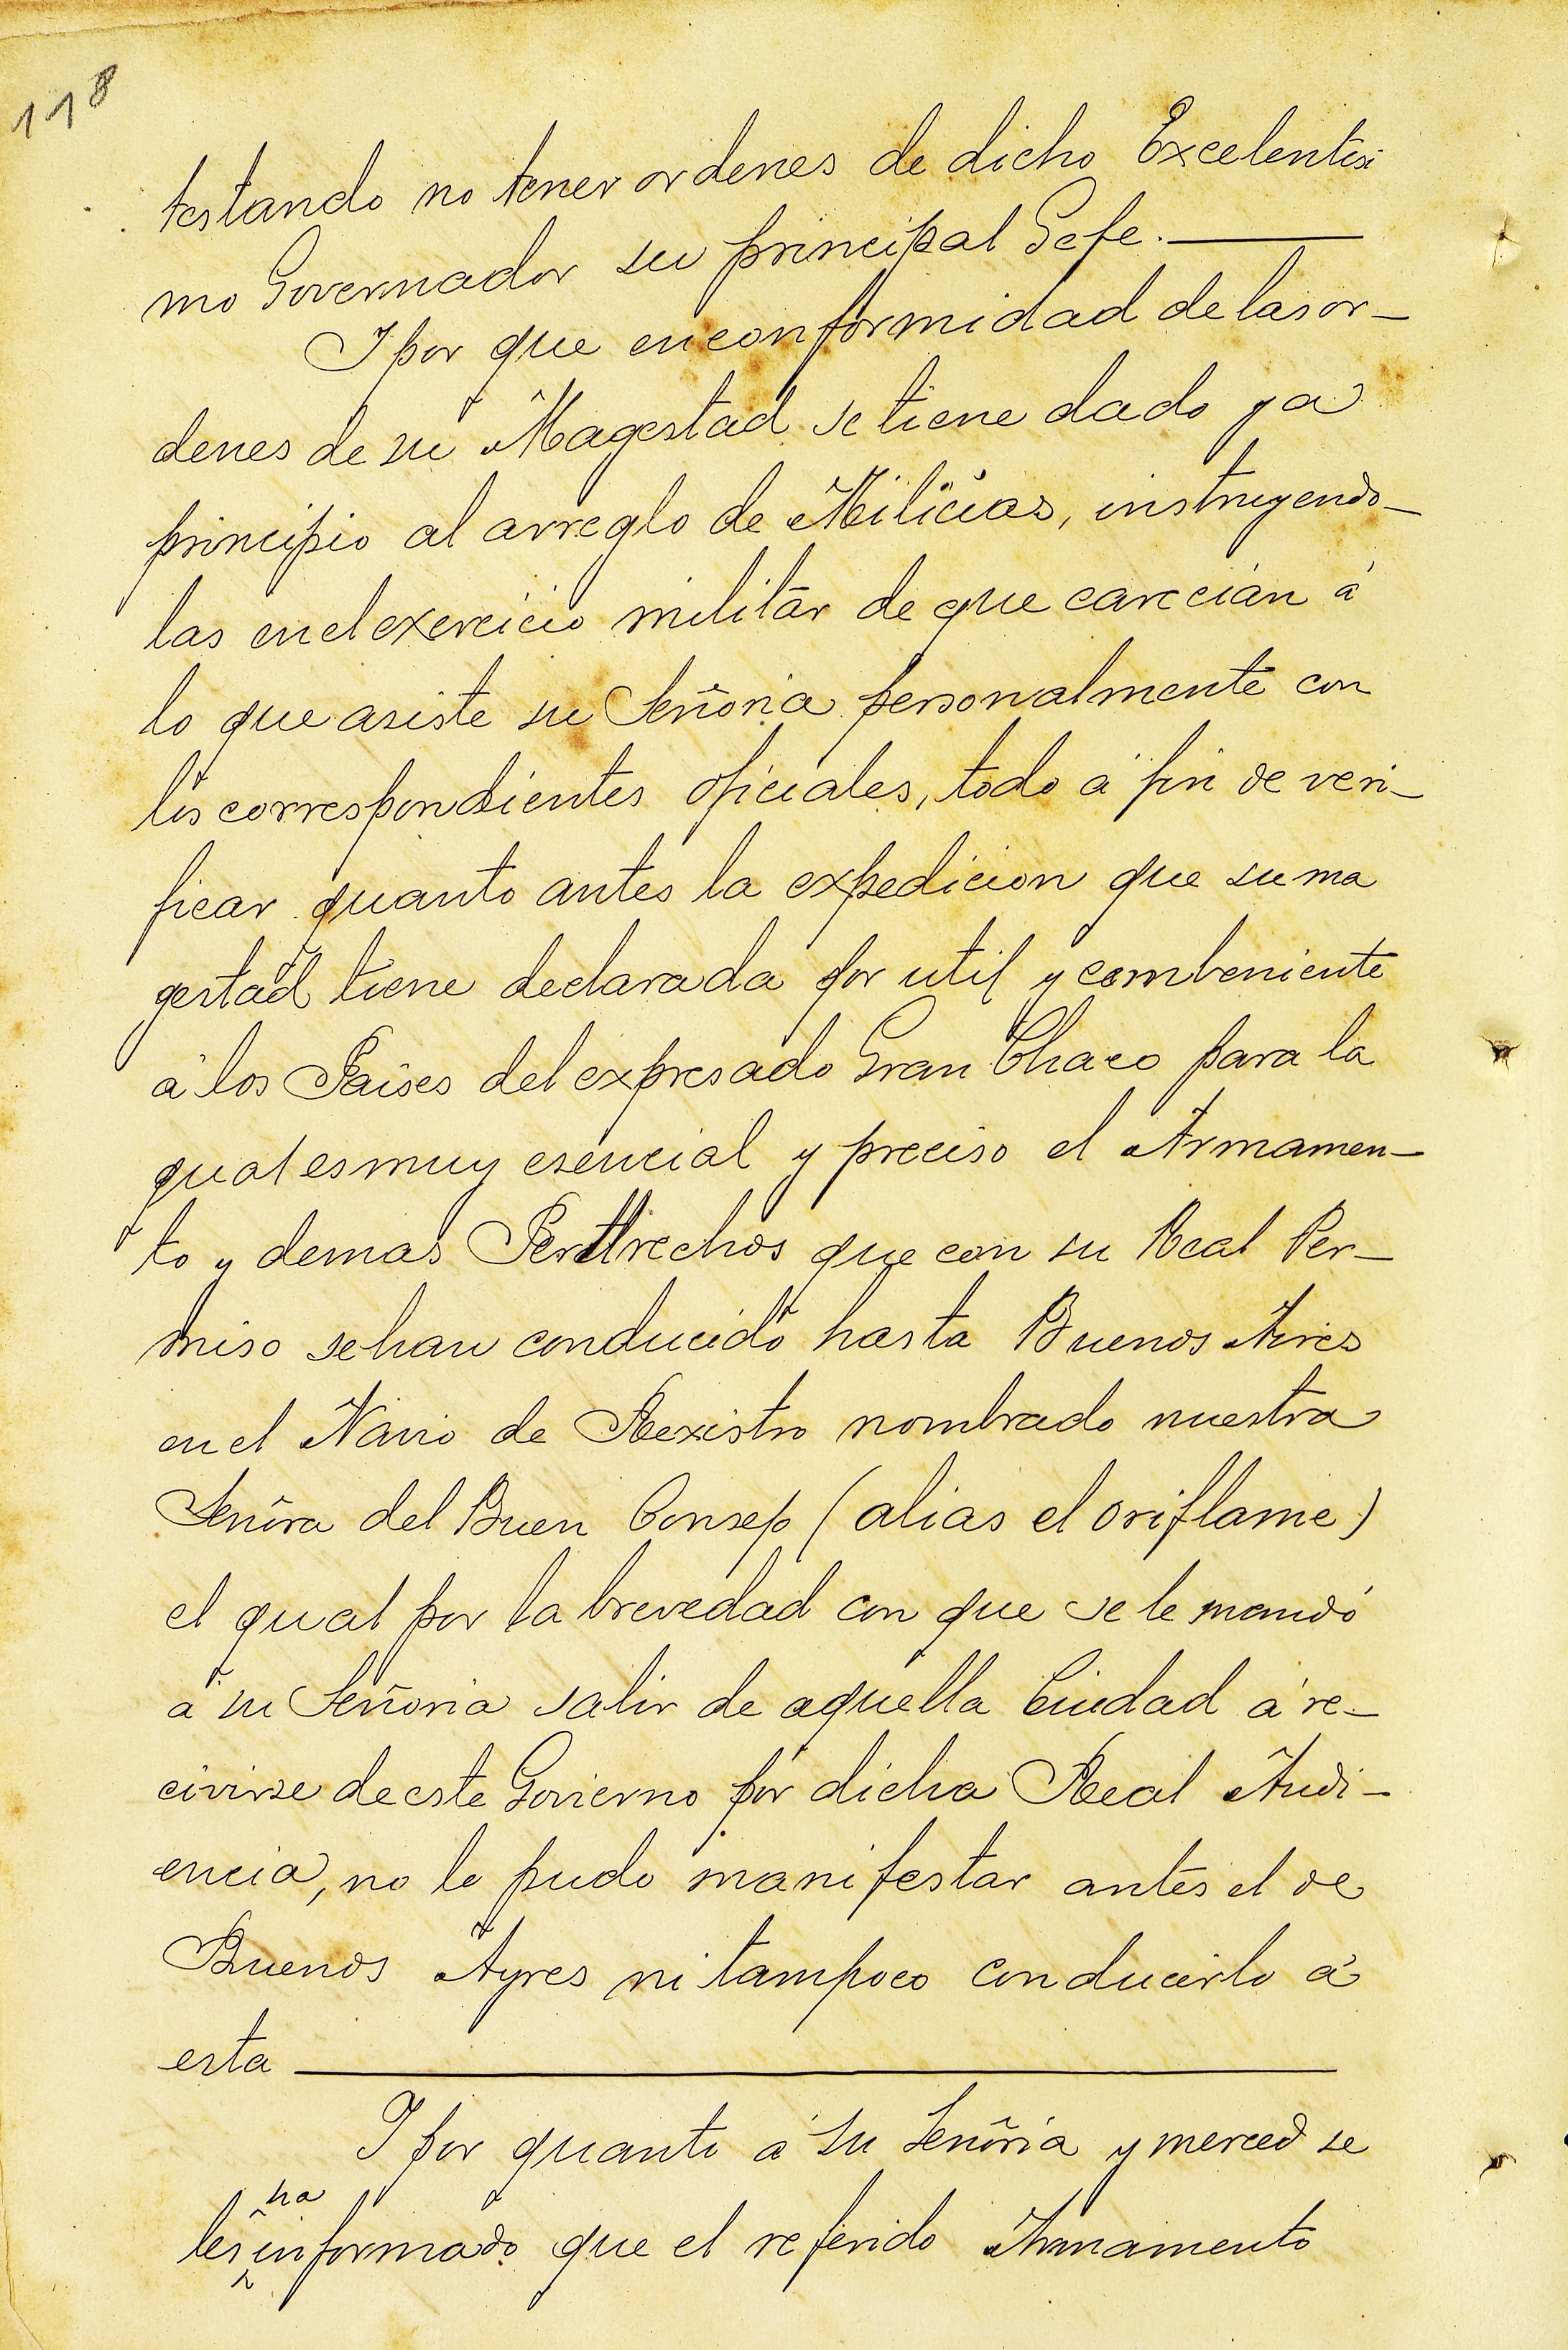 118
testando no tener ordenes de dicho Excelentisi
mo Governador su principal Gefe.
I por que en conformidad de las or-
denes de su Magestad se tiene dado ya
principio al arreglo de Milicias, instruyendo-
las en el exercicio militár de que carecian á
lo que asiste su Señoria personalmente con
los correspondientes oficiales, todo á fin de veri-
ficar quanto antes la expedicion que su ma
gestad tiene declarada por util y combeniente
á los Paises del expresado Gran Chaco para la
qual es muy esencial y preciso el Armamen-
to y demas Pertrechos que con su Real Per-
miso se han conducido hasta Buenos Aires
en el Navio de Rexistro nombrado nuestra
Señora del Buen Consejo (alias el oriflame)
el qual por la brevedad con que se le mandó
á su Señoria salir de aquella Ciudad á re-
civirse de este Govierno por dicha Real Audi-
encia, no lo pudo manifestar antes el de
Buenos Ayres ni tampoco conducirlo á
esta
I por quanto á su Señoria y merced se
les ha informado que el referido Armamento